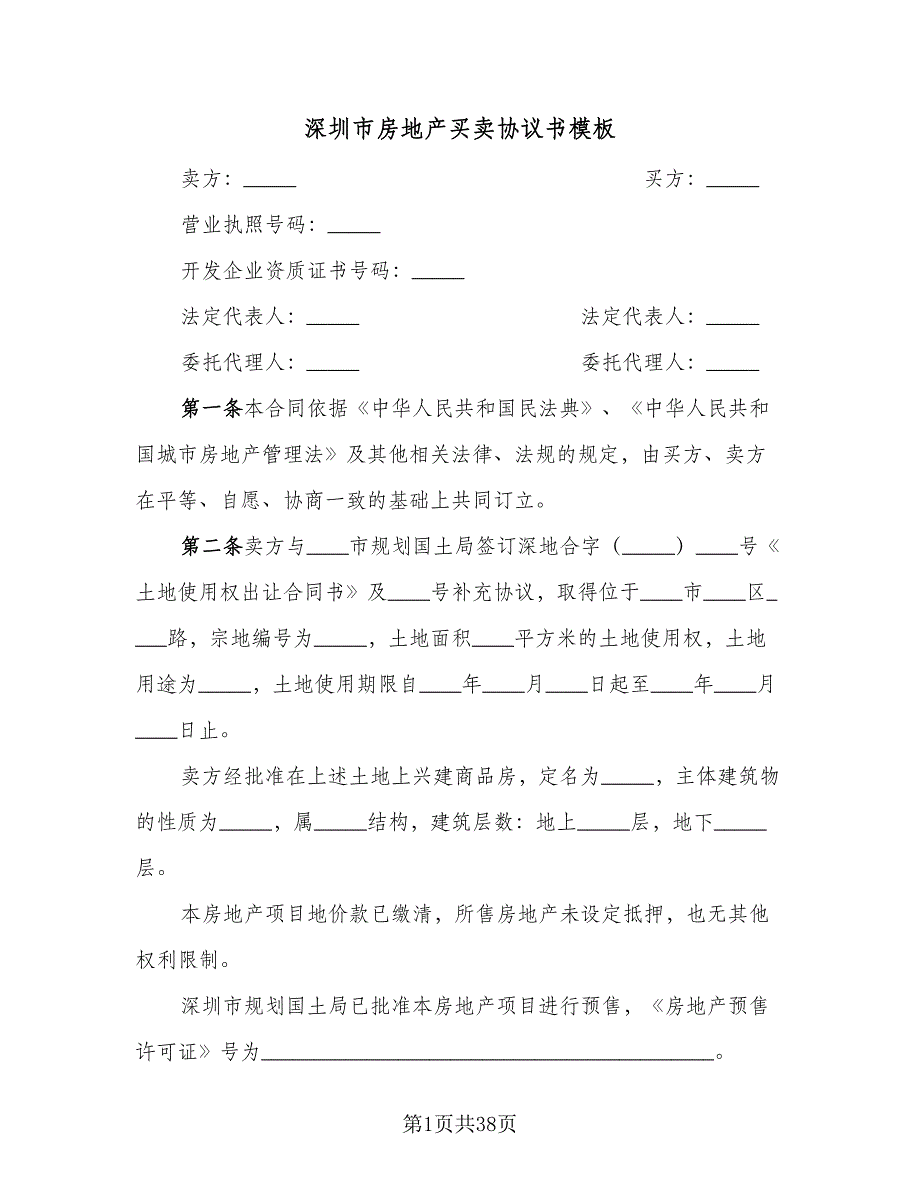 深圳市房地产买卖协议书模板
卖方：_____ 买方：_____
营业执照号码：_____
开发企业资质证书号码：_____
法定代表人：_____ 法定代表人：_____
委托代理人：_____ 委托代理人：_____
第一条本合同依据《中华人民共和国民法典》、《中华人民共和
国城市房地产管理法》及其他相关法律、法规的规定，由买方、卖方
在平等、自愿、协商一致的基础上共同订立。
第二条卖方与____市规划国土局签订深地合字（_____）____号《
土地使用权出让合同书》及____号补充协议，取得位于____市____区_
___路，宗地编号为_____，土地面积____平方米的土地使用权，土地
用途为_____，土地使用期限自____年____月____日起至____年____月
____日止。
卖方经批准在上述土地上兴建商品房，定名为_____，主体建筑物
的性质为_____，属_____结构，建筑层数：地上_____层，地下_____
层。
本房地产项目地价款已缴清，所售房地产未设定抵押，也无其他
权利限制。
深圳市规划国土局已批准本房地产项目进行预售，《房地产预售
许可证》号为___________________________________________。
第1页共38页